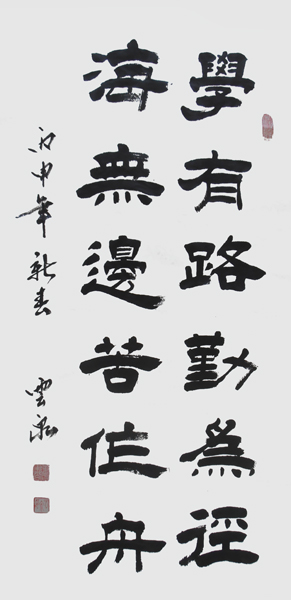 學有路勤為徑
海無邊苦作舟
丙申年新春 雲